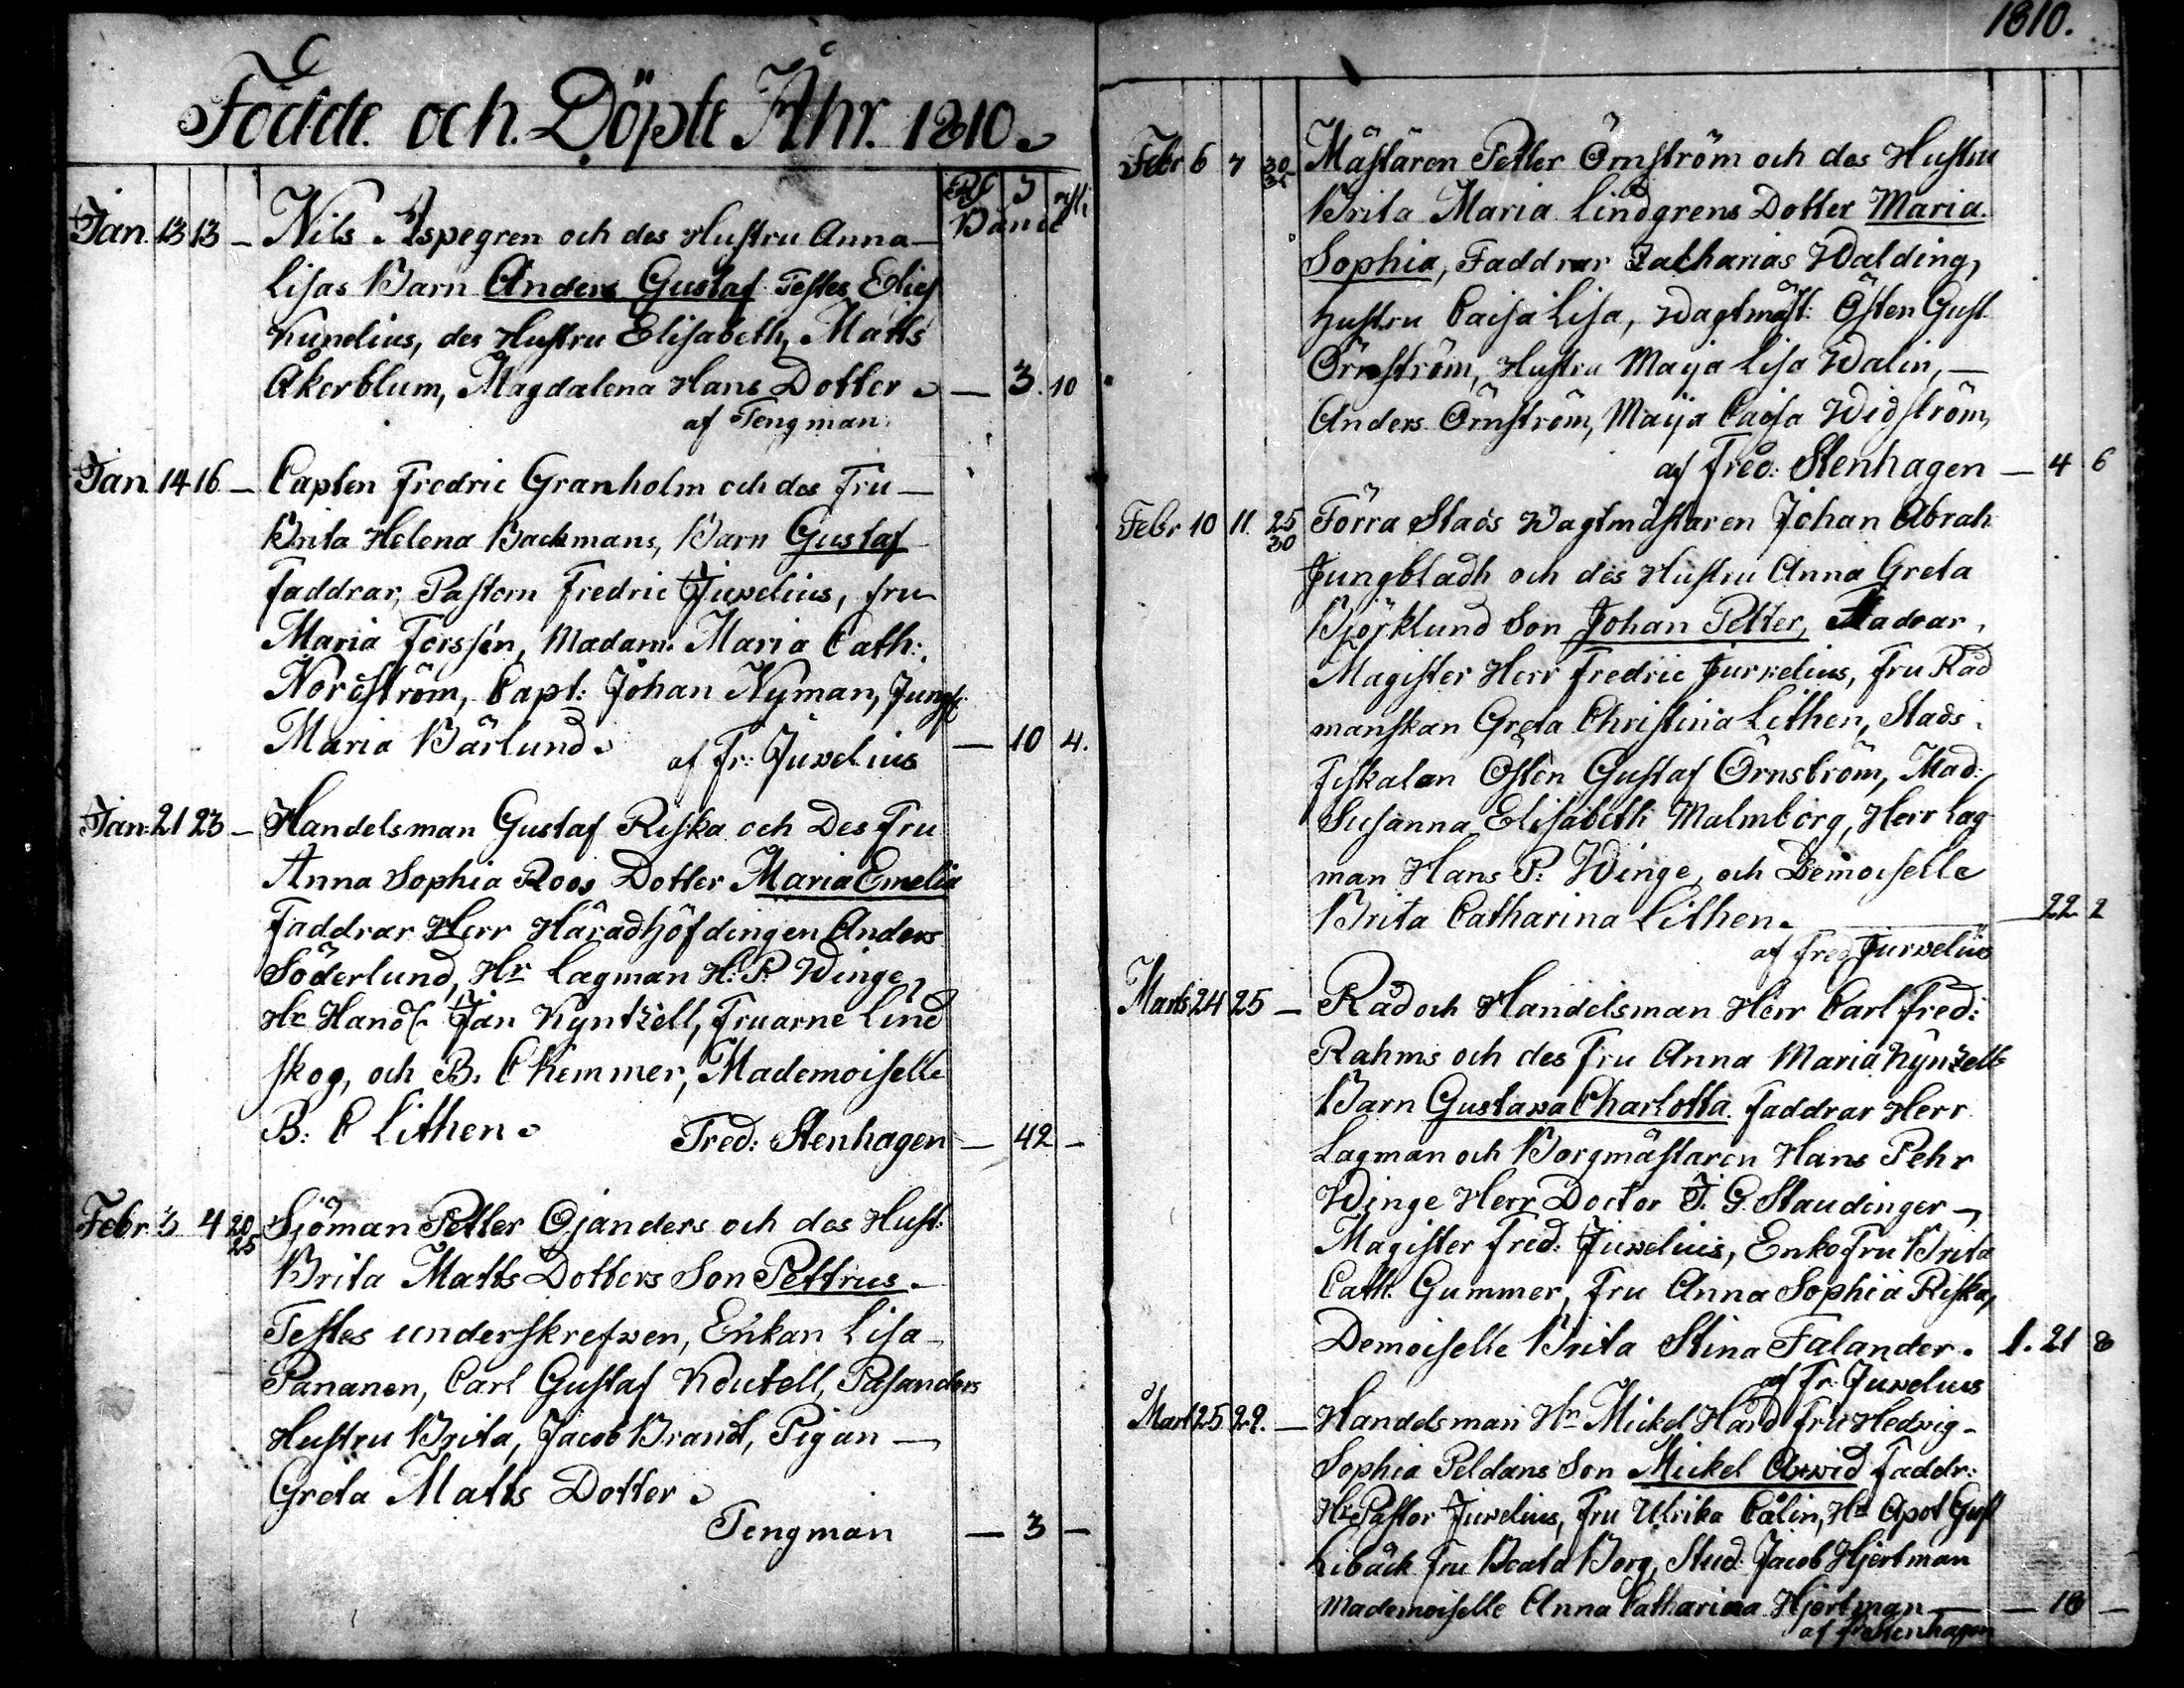 Födde och Döpte Åhr. 1810.
Banco
Jan. 13 13 — Nils Aspegren och des Hustru Anna
Lisas Barn Anders Gustaf Testes Elies
Kunelius, des Hustru Elisabeth, Matts
Åkerblum, Magdalena Hans Dotter — 3. 10
af Tengman
Jan. 14 16 — Capten Fredric Granholm och des Fru —
Brita Helena Backmans, Barn Gustaf
Faddrar, Pastorn Fredric Juvelius, fru
Maria Forssén, Madam. Maria Cath:
Nordström, Capt: Johan Nyman, Jungf:
Maria Bärlund. — 10 4.
af Fr: Juvelius
Jan: 21 23 — Handelsman Gustaf Riska och Des Fru
Anna Sophia Roos Dotter Maria Emelia
Faddrar Herr Häradhöfdingen Anders
Söderlund, Hr Lagman H: P: Winge,
Hr Handl. Jan Kyntzell, Fruarne Lind
skog, och B. C Kemmer, Mademoiselle
B: C Lithen.
Fred: Stenhagen — 42 —
Febr 3 4 20 25 Sjöman Petter Ojanders och des Hust:
Brita Matts Dotters Son Pettrus.
Testes underskrefwen, Enkan Lisa
Pananen, Carl Gustaf Koutell, Pasanders
Hustru Brita, Jacob Brandt, Pigan —
Greta Matts Dotter.
Tengman — 3 —
1810.
Febr 6 7 30 35 Mästaren Petter Örnström och des Hustru
Brita Maria Lindgrens Dotter Maria
Sophia, Faddrar Zacharias Walding,
hustru Caisa Lisa, Wagtmäst: Östen Gust
Örnström, Hustru Maija Lisa Walin, —
Anders Örnström, Maija Caisa Widström,
af Fred: Stenhagen — 4 6
Febr 10 11. 25 30 Förra Stads Wagtmästaren Johan Abrah
Jungbladh och des Hustru Anna Greta
Björklund Son Johan Petter, Fadrar,
Magister Herr Fredric Juvelius, Fru Råd
manskan Greta Christina Lithen, Stads
Fiskalen Östen Gustaf Örnström, Mad:
Susanna Elisabeth Malmborg, Herr Lag
man Hans P: Winge, och Demoiselle
Brita Catharina Lithen. — 22 2
af Fred Juvelius
Marts 24 25 — Råd och Handelsman Herr Carl Fred:
Rahms och des Fru Anna Maria Kyntzells
Barn Gustava Charlotta. Faddrar Herr
Lagman och Borgmästaren Hans Pehr
Winge Herr Doctor J: G: Staudinger —
Magister Fred: Juvelius, Enkefru Brita
Cath: Gummer, Fru Anna Sophia Riska,
Demoiselle Brita Stina Falander. 1. 21 8
af Fr: Juvelius
Mart 25 29. — Handelsman Hr Mickel Hård Fru Hedvig
Sophia Peldans Son Mickel Arwid Faddr:
Hr Pastor Juvelius, Fru Ulrika Calin, Hr Apot Gust
Libäck Fru Beata Borg, Stud: Jacob Hjertman
Mademoiselle Anna Catharina Hjertman — — 18 —
af Fr Stenhagen